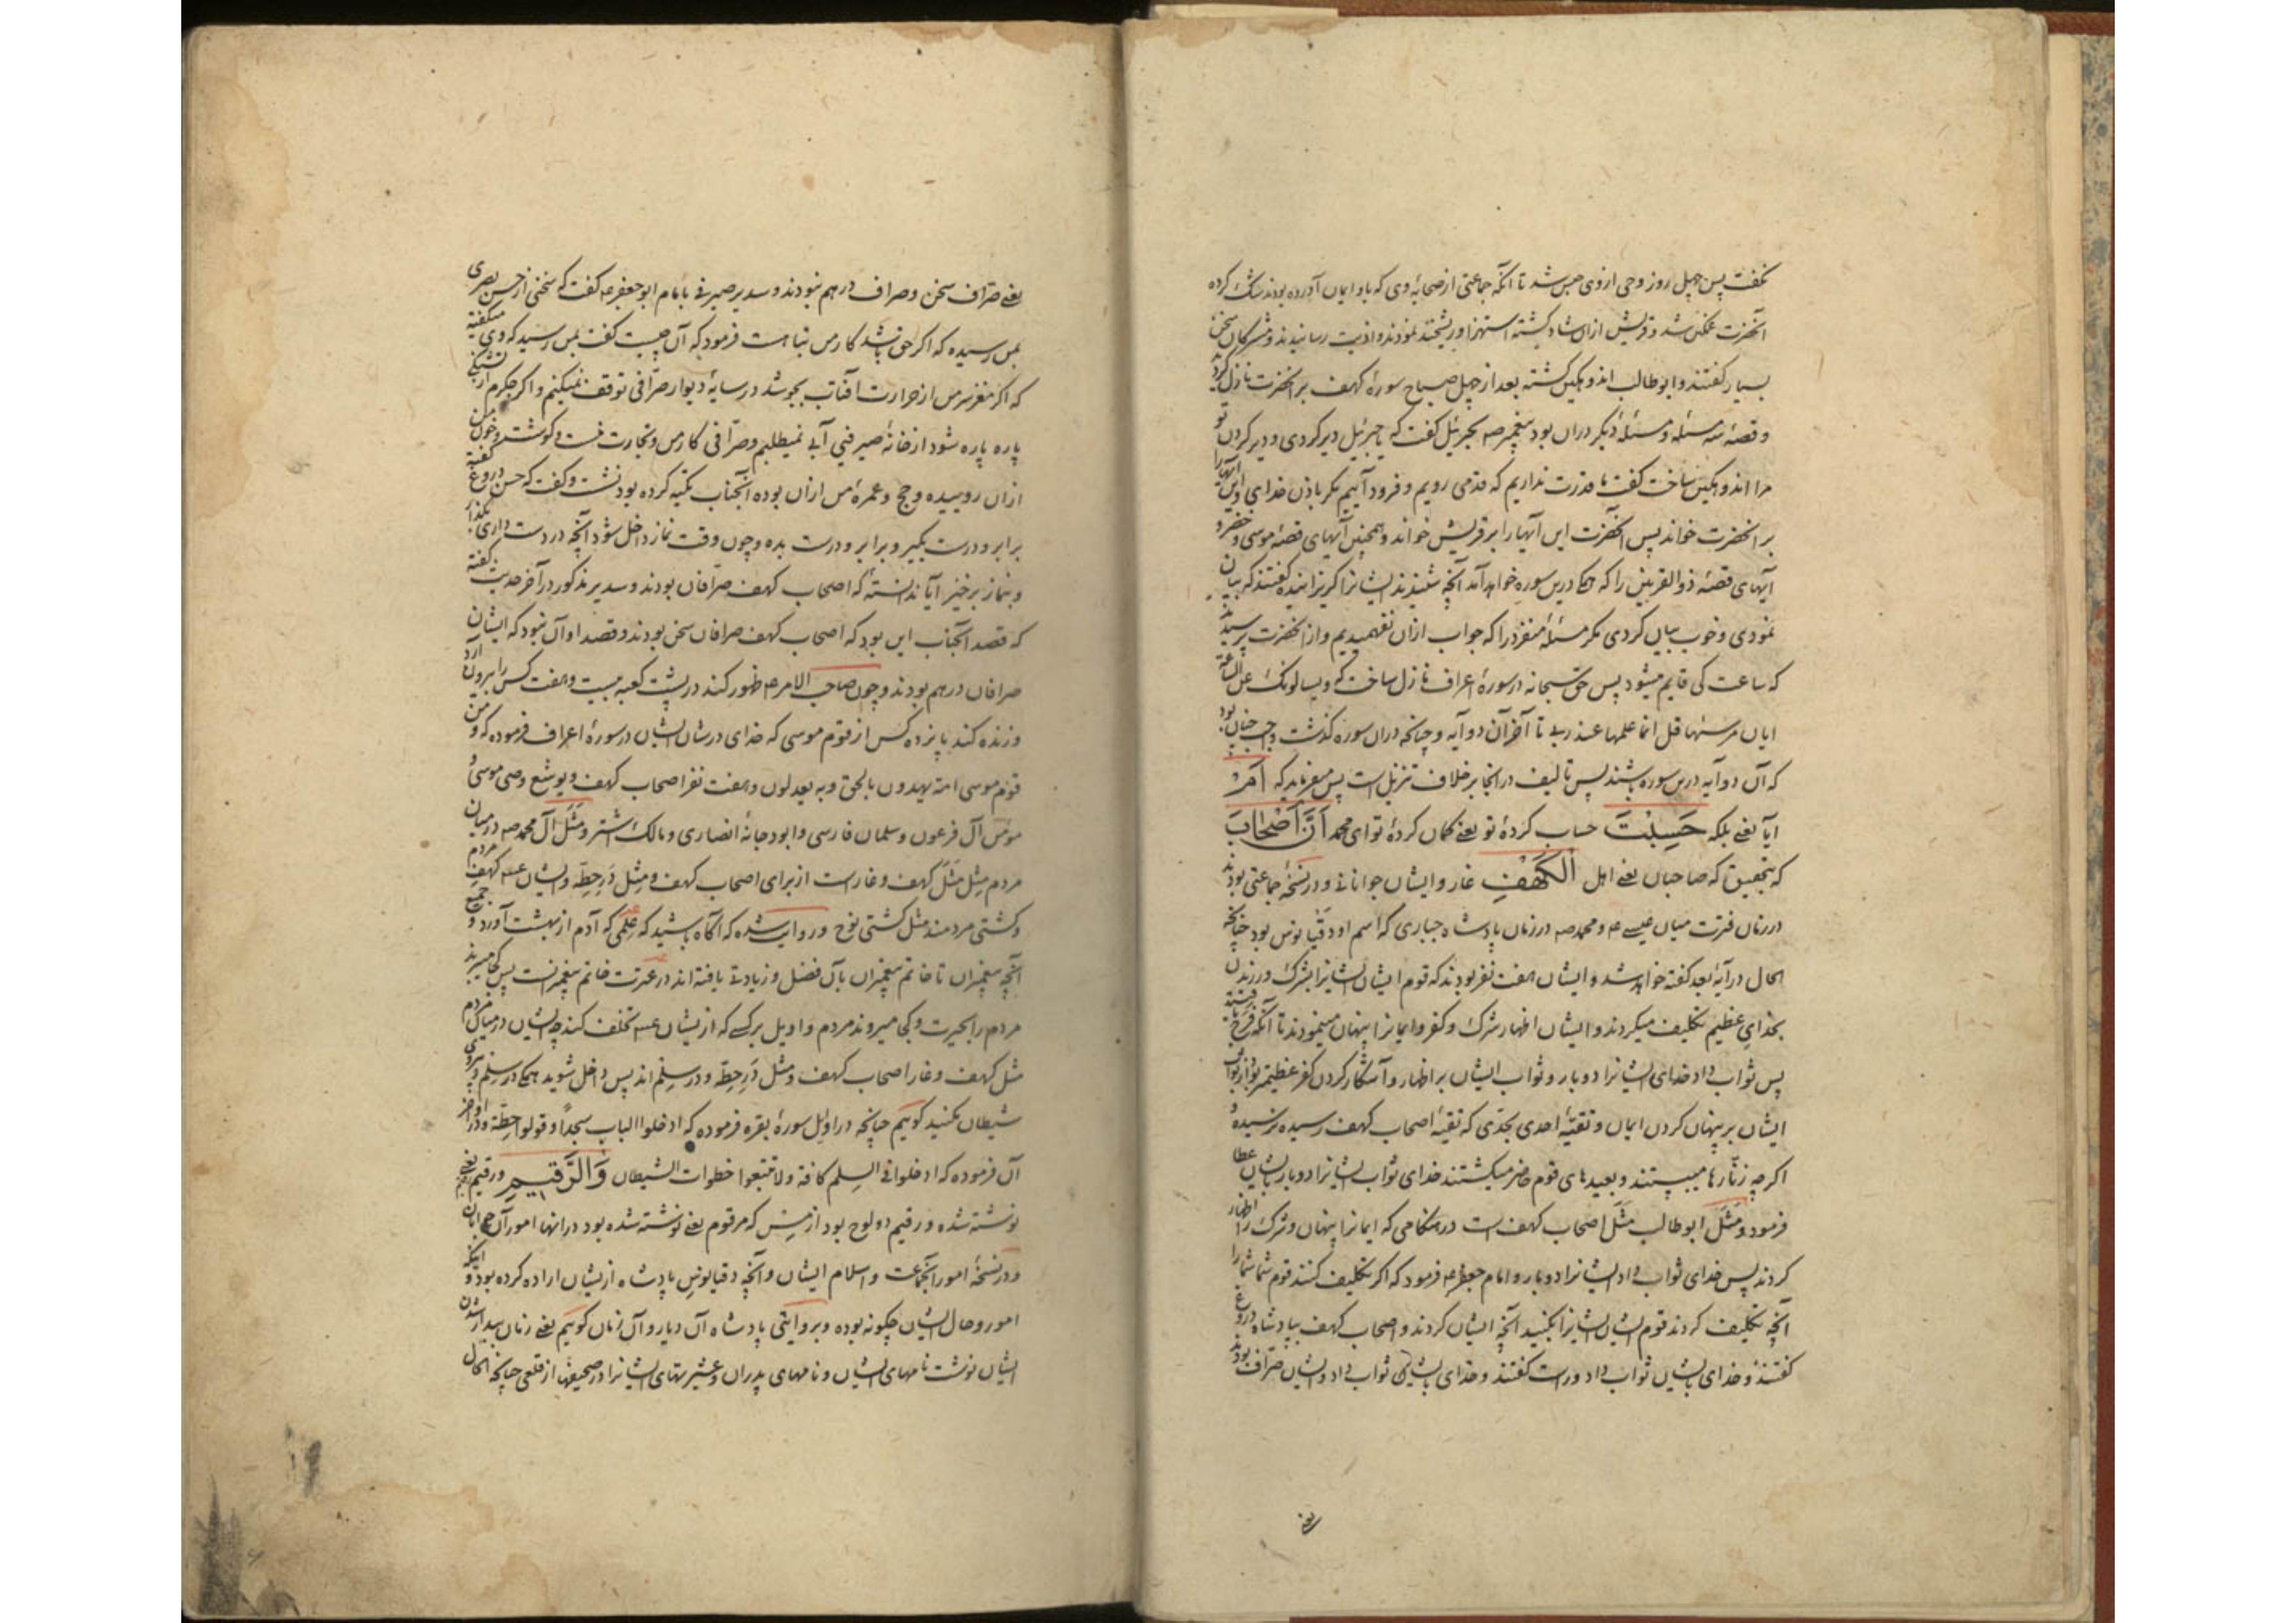 نکفت پس چهل روز وحی ازوی حبس شد تا آنکه جماعتی از صحابهٔ وی که باو ایمان آورده بودند شک کرده
آنحضرت غمگین شد و قریش ازان شاد کشته استهزا و ریشخند نمودند و اذیت رسانیدند و مشرکان سخن
بسیار کفتند و ابوطالب اندوهکین کشته بعد از چهل صباح سورهٔ کهف بر آنحضرت نازل کردید
و قصهٔ سه مسئله و مسئلهٔ دیکر دران بود پیغمبر صه بجبرئیل کفت که یا جبرئیل دیر کردی و دیر کردن تو
مرا اندوهکین ساخت کفت ما قدرت نداریم که قدمی رویم و فرود آییم مکر باذن خدای و این آیهارا
بر آنحضرت خواند پس آنحضرت این آیها را بر قریش خواند و همچنین آیهای قصهٔ موسی و خضر و
آیهای قصهٔ ذوالقرنین را که همکی درین سوره خواهد آمد آنچه شنیدند ایشانرا کریزانیده کفتند که بیان
نمودی و خوب بیان کردی مکر مسئلهٔ منفرد را که جواب ازان نفهمیدیم و از آنحضرت پرسیدند
که ساعت کی قایم میشود پس حق سبحانه در سورهٔ اعراف نازل ساخت که و یسالونک عن الساعة
ایان مرسیها قل انما علمها عند ربی تا آخر آن دو آیه و چنانچه دران سوره کذشت واجب چنان بود
که آن دو آیه درین سوره باشند پس تالیف در اینجا بر خلاف تنزیل است پس میفرماید که اَمْ
آیا یعنی بلکه حَسِبْتَ حساب کردهٔ تو یعنی کمان کردهٔ تو ای محمد اَنَّ اَصْحَابَ
که بتحقیق که صاحبان یعنی اهل الْکَهْفِ غار و ایشان جوانانی و در نسخهٔ جماعتی بودند
در زمان فترت میان عیسی عه و محمد صه در زمان پادشاه جباری که اسم او دقیانوس بود چنانچه
الحال در آیهٔ بعد کفته خواهد شد و ایشان هفت نفر بودند که قوم ایشان ایشانرا بشرک ورزیدن
بخدای عظیم تکلیف میکردند و ایشان اظهار شرک و کفر و ایمانرا پنهان مینمودند تا آنکه فرج یافتند
پس ثواب داد خدای ایشانرا دو بار و ثواب ایشان بر اظهار و آشکار کردن کفر عظیمتر بود از ثواب
ایشان بر پنهان کردن ایمان و تقیّهٔ احدی بحدّی که تقیهٔ اصحاب کهف رسیده نرسیده و
اکرچه زنّارها میبستند و بعیدهای قوم حاضر میکشتند خدای ثواب ایشانرا دو بار بایشان عطا
فرمود و مَثَل ابوطالب مثَل اصحاب کهف است در هنکامی که ایمانرا پنهان و شرک را اظهار
کردند پس خدای ثواب داد ایشانرا دو بار و امام جعفر عه فرمود که اکر تکلیف کنند قوم شما شما را
آنچه تکلیف کردند قوم ایشان ایشانرا بکنید آنچه ایشان کردند و اصحاب کهف بپادشاه دروغ
کفتند و خدای بایشان ثواب داد و راست کفتند و خدای بایشان ثواب داد و ایشان صرّاف بودند
یعنی
یعنی صرّاف سخن و صراف درهم نبودند و سدیر صیرفی با امام ابو جعفر عه کفت که سخنی از حسن بصری
بمن رسیده که اکر حق باشد کار من تباهست فرمود که آن چیست کفت بمن رسید که وی میکفته
که اکر مغز سر من از حرارت آفتاب بجوشد در سایهٔ دیوار صرّافی توقف نمیکنم و اکر جکرم از تشنکی
پاره پاره شود از خانهٔ صیرفی آبی نمیطلبم و صرّافی کار من و تجارت منست و کوشت و خون من
ازان روییده و حج و عمرهٔ من ازان بوده آنجناب تکیه کرده بود نشست و کفت که حسن دروغ کفته
برابر و درست بکیر و برابر و درست بده و چون وقت نماز داخل شود آنچه در دست داری بکذار
و بنماز برخیز آیا ندانستهٔ که اصحاب کهف صرّافان بودند و سدیر مذکور در آخر حدیث کفته
که قصد آنجناب این بود که اصحاب کهف صرافان سخن بودند و قصد او آن نبود که ایشان
صرافان درهم بودند و چون صاحب الامر عه ظهور کند در پشت کعبه بیست و هفت کس را بیرون آرد
و زنده کند پانزده کس از قوم موسی که خدای در شان ایشان در سورهٔ اعراف فرموده که و من
قوم موسی امة یهدون بالحق و به یعدلون و هفت نفر اصحاب کهف و یوشع وصی موسی و
مؤمن آل فرعون و سلمان فارسی و ابو دجانهٔ انصاری و مالک اشتر و مَثَل آل محمد صه در میان مردم
مردم مثل مَثَل کهف و غار است از برای اصحاب کهف و مثل دَرِ حِطّه و ایشان عسه کهف
و کشتی مردمند مثل کشتی نوح و روایت شده که آکاه باشید که عِلمی که آدم از بهشت آورد و جمیع
آنچه پیغمبران تا خاتم پیغمبران بآن فضل و زیادتی یافته اند در عترت خاتم پیغمبرانست پس کجا میبرند
مردم را بحیرت و کجا میروند مردم و اویل برکسی که از ایشان عسه تخلف کند چه ایشان در میان مردم
مثل کهف و غار اصحاب کهف و مثل دَرِ حِطّه و درِ سِلم اند پس داخل شوید همکی در سِلم و پیروی
شیطان مکنید کوییم چنانچه در اوایل سورهٔ بقره فرموده که ادخلوا الباب سجداً و قولوا حِطّة و در اواخر
آن فرموده که ادخلوا فی السلم کافة و لا تتبعوا خطوات الشیطان وَالرَّقِیمِ و رقیم یعنی
نوشته شده و رقیم دو لوح بود از مِس که مرقوم یعنی نوشته شده بود در انها امور آن جوانان
و در نسخهٔ امور آنجماعت و اسلام ایشان و آنچه دقیانوس پادشاه از ایشان اراده کرده بود و اینکه
امور و حال ایشان چکونه بوده و بروایتی پادشاه آن دیار و آن زمان کوییم یعنی زمان بیدار شدن
ایشان نوشت نامهای ایشان و نامهای پدران و عشیرتهای ایشانرا در صحیفها از قلعی چنانچه الحال